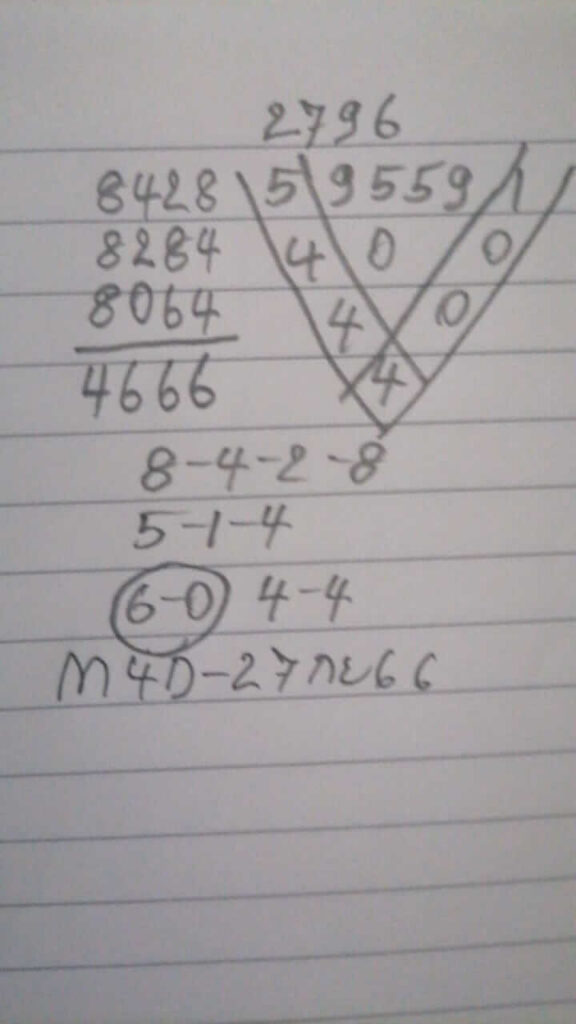 2796
8428 5 9559 1
8284 4 0 0
8064 4 0
4666 4
8-4-2-8
5-1-4
6-0 4-4
M4D-27
66